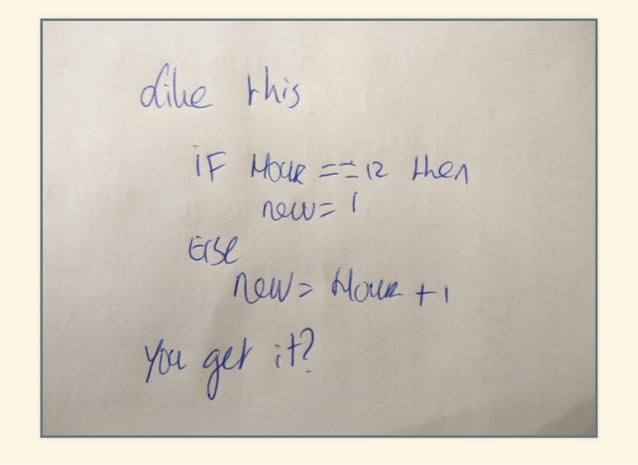 Like this
if Hour === 12 then
new = 1
Else
new = Hour + 1
You get it?